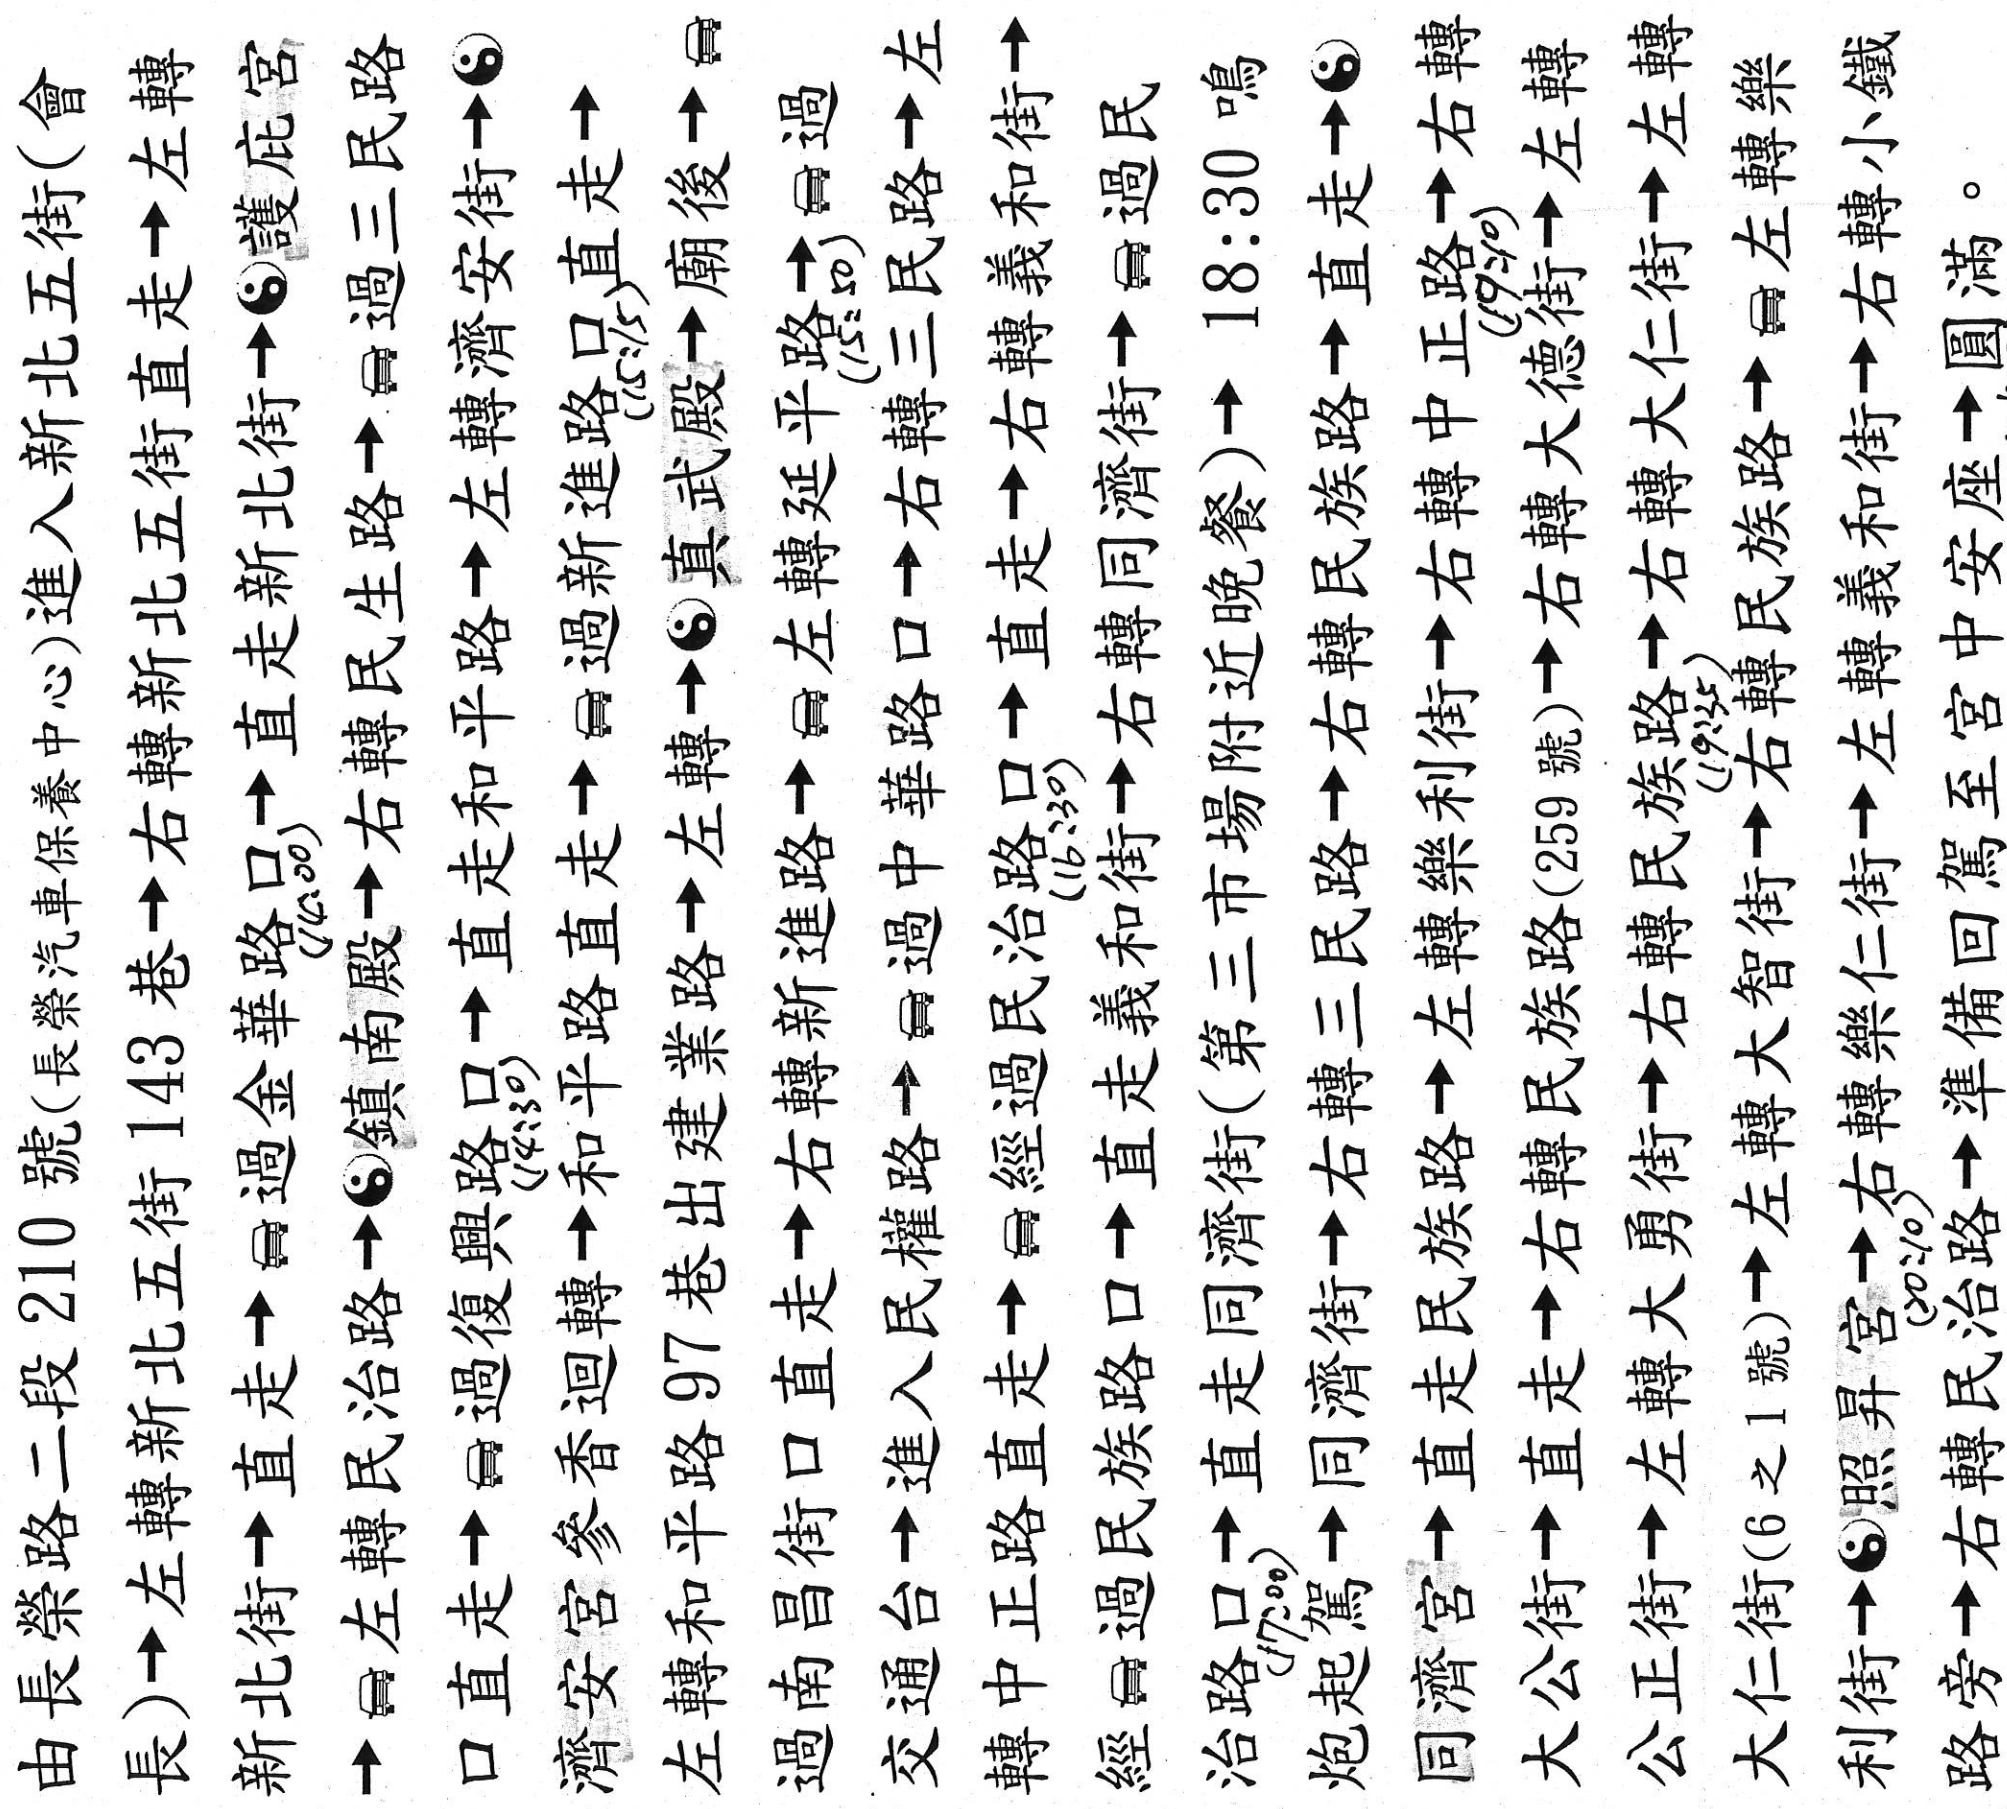 由長榮路二段 210 號(長榮汽車保養中心)進入新北五街(會
長)→左轉新北五街 143 巷→右轉新北五街直走→左轉
新北街→直走→🚘過金華路口→直走新北街→☯護庇宮
(14:00)
→🚘左轉民治路→☯鎮南殿→右轉民生路→🚘過三民路
口直走→🚘過復興路口→直走和平路→左轉濟安街→☯
(14:30)
濟安宮參香迴轉→和平路直走→🚘過新進路口直走→
(15:15)
左轉和平路 97 巷出建業路→左轉→☯真武殿→廟後→🚘
過南昌街口直走→右轉新進路→🚘左轉延平路→🚘過
(15:50)
交通台→進入民權路→🚘過中華路口→右轉三民路→左
轉中正路直走→🚘經過民治路口→直走→右轉義和街→
(16:30)
經🚘過民族路口→直走義和街→右轉同濟街→🚘過民
治路口→直走同濟街(第三市場附近晚餐)→ 18:30 鳴
(17:00)
炮起駕→同濟街→右轉三民路→右轉民族路→直走→☯
同濟宮→直走民族路→左轉樂利街→右轉中正路→右轉
(19:10)
大公街→直走→右轉民族路(259 號)→右轉大德街→左轉
公正街→左轉大勇街→右轉民族路→右轉大仁街→左轉
(19:35)
大仁街(6 之 1 號)→左轉大智街→右轉民族路→🚘左轉樂
利街→☯照昇宮→右轉樂仁街→左轉義和街→右轉小鐵
(20:10)
路旁→右轉民治路→準備回駕至宮中安座→圓滿。